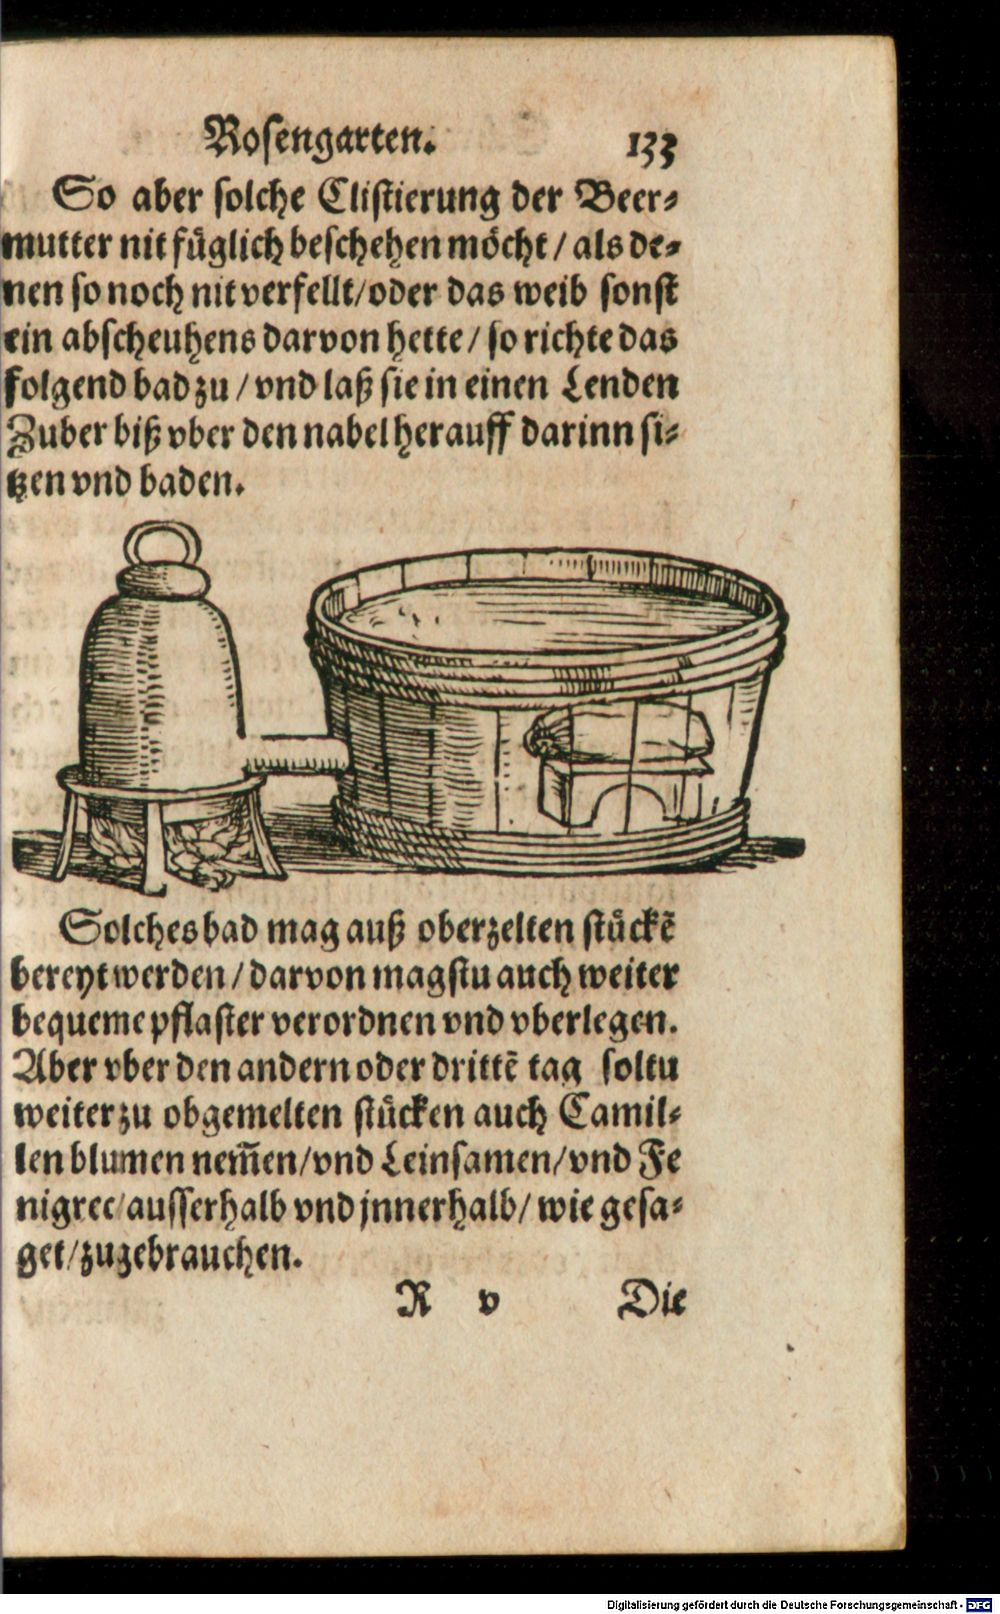 Rosengarten. 133
So aber solche Clistierung der Beer⸗
mutter nit fůglich beschehen möcht / als de⸗
nen so noch nit verfellt/oder das weib sonst
ein abscheuhens darvon hette / so richte das
folgend bad zu / vnd laß sie in einen Lenden
Zuber biß vber den nabel herauff darinn si⸗
tzen vnd baden.
Solches bad mag auß oberzelten stůckẽ
bereyt werden / darvon magstu auch weiter
bequeme pflaster verordnen vnd vberlegen.
Aber vber den andern oder drittẽ tag soltu
weiter zu obgemelten stůcken auch Camil⸗
len blumen nem̃en/vnd Leinsamen/vnd Fe
nigrec/ausserhalb vnd jnnerhalb/ wie gesa⸗
get/zugebrauchen.
R v Die
Digitalisierung gefördert durch die Deutsche Forschungsgemeinschaft - DFG